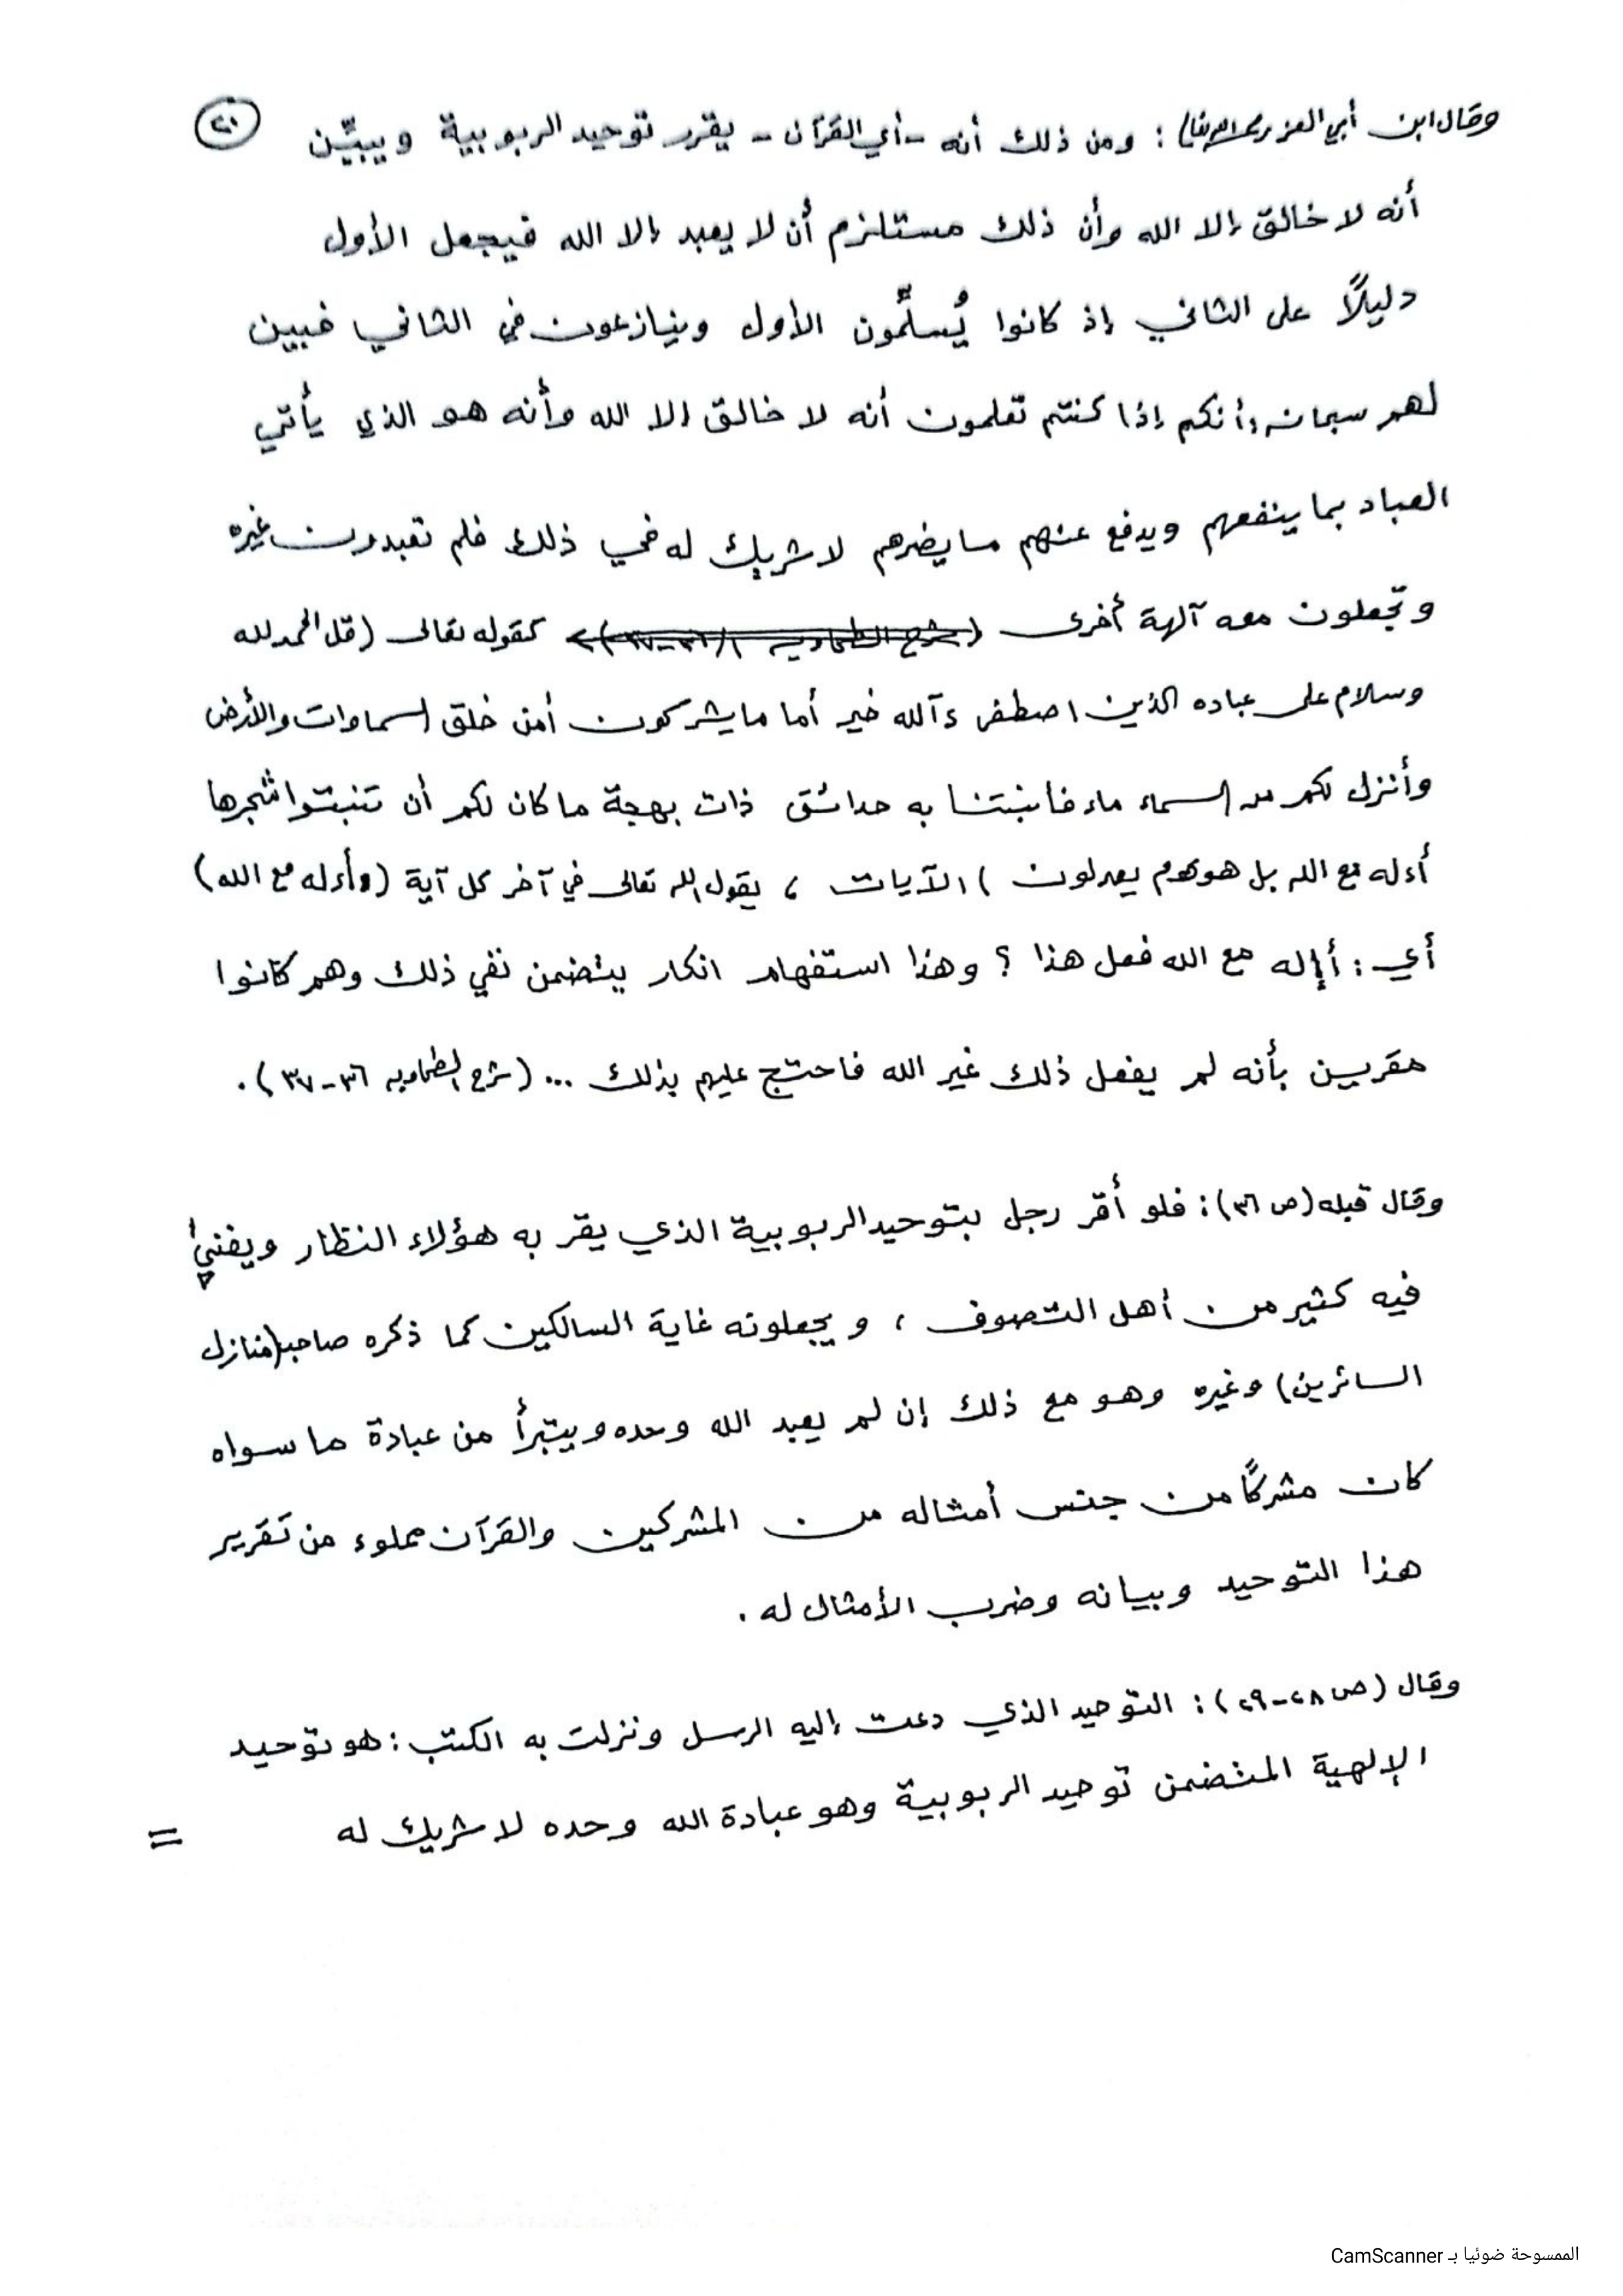 وقال ابن أبي العز رحمه الله تعالى: ومن ذلك أنه - أي القرآن - يقرر توحيد الربوبية ويبيّن (٢٠)
أنه لا خالق إلا الله وأن ذلك مستلزم أن لا يعبد إلا الله فيجعل الأول
دليلاً على الثاني إذ كانوا يُسلِّمون الأول وينازعون في الثاني فبين
لهم سبحانه أنكم إذا كنتم تعلمون أنه لا خالق إلا الله وأنه هو الذي يأتي
العباد بما ينفعهم ويدفع عنهم ما يضرهم لا شريك له في ذلك فلم تعبدون غيره
وتجعلون معه آلهة أخرى كقوله تعالى (قل الحمد لله
وسلام على عباده الذين اصطفى ءآلله خير أما ما يشركون أمن خلق السماوات والأرض
وأنزل لكم من السماء ماء فأنبتنا به حدائق ذات بهجة ما كان لكم أن تنبتوا شجرها
أءله مع الله بل هم قوم يعدلون) الآيات، يقول الله تعالى في آخر كل آية (أءله مع الله)
أي: أإله مع الله فعل هذا؟ وهذا استفهام انكار يتضمن نفي ذلك وهم كانوا
مقربين بأنه لم يفعل ذلك غير الله فاحتج عليهم بذلك ... (شرح الطحاويه ٣٦-٣٧).
وقال قبله (ص ٣٦): فلو أقر رجل بتوحيد الربوبية الذي يقر به هؤلاء النظار ويفنى
فيه كثير من أهل التصوف، ويجعلونه غاية السالكين كما ذكره صاحب (منازل
السائرين) وغيره وهو مع ذلك إن لم يعبد الله وحده ويتبرأ من عبادة ما سواه
كان مشركًا من جنس أمثاله من المشركين والقرآن مملوء من تقرير
هذا التوحيد وبيانه وضرب الأمثال له.
وقال (ص ٢٨-٢٩): التوحيد الذي دعت إليه الرسل ونزلت به الكتب: هو توحيد
الإلهية المتضمن توحيد الربوبية وهو عبادة الله وحده لا شريك له =
الممسوحة ضوئيا بـ CamScanner